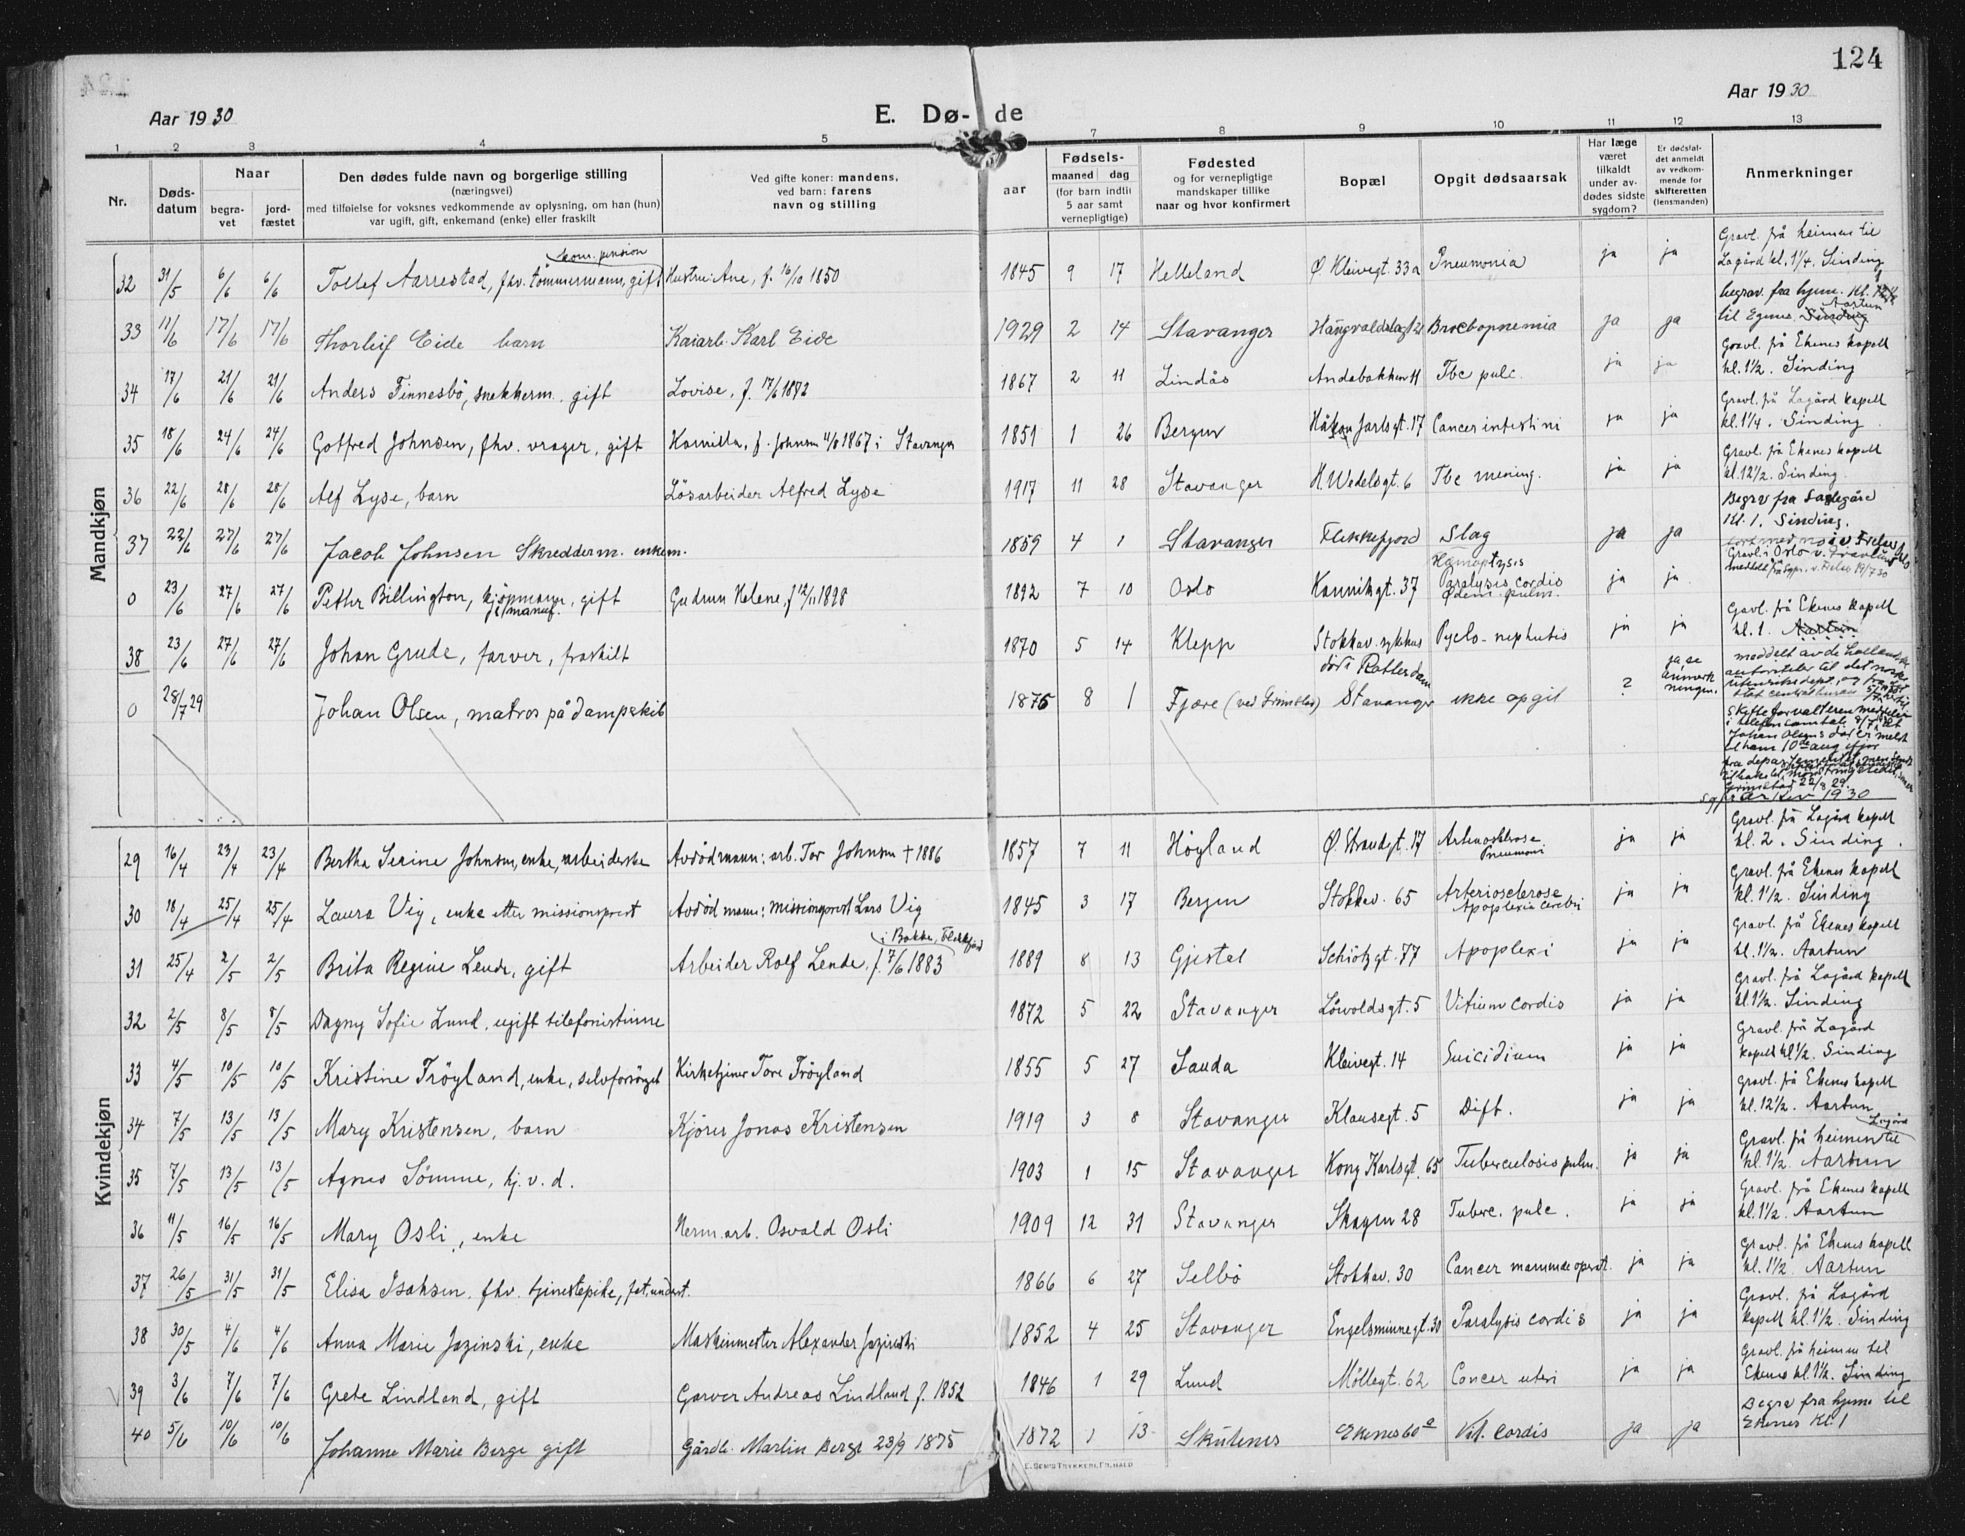 124
Aar 1930
E. Dø- de
Aar 1930
1 2 3 4 5 7 8 9 10 11 12 13
Nr.
Døds-datum
Naar
begra-vet
jord-fæstet
Den dødes fulde navn og borgerlige stilling
(næringsvei)
med tilføielse for voksnes vedkommende av oplysning, om han (hun)
var ugift, gift, enkemand (enke) eller fraskilt
Ved gifte koner: mandens,
ved barn: farens
navn og stilling
aar
Fødsels-
maaned dag
(for barn indtil
5 aar samt
vernepligtige)
Fødested
og for vernepligtige
mandskaper tillike
naar og hvor konfirmert
Bopæl
Opgit dødsaarsak
Har læge
været
tilkaldt
under av-
dødes sidste
sygdom?
Er dødsfal-
det anmeldt
av vedkom-
mende for
skifteretten
(lensmanden)
Anmerkninger
Mandkjøn
32 31/5 6/6 6/6 Tollef Aarrestad, fhv. tømmermann, gift kom. pension Hustru: Ane, f. 16/10 1850 1845 9 17 Helleland Ø. Kleivegt. 33a Pneumonia ja ja Gravl. frå heimen til Lagård kl. 1 1/4. Sinding
33 11/6 17/6 17/6 Thorleif Eide barn Kaiarb. Karl Eide 1929 2 14 Stavanger ja ja begrav. fra hjem. til Egenes. Sinding Aartun
34 17/6 21/6 21/6 Anders Finnesbö, snekkerm. gift Lovise, f. 17/6 1872 1867 2 11 Lindås Andabakken 11 Tbc pulc. ja ja Gravl. på Ekenes kapell kl. 1 1/2. Sinding
35 18/6 24/6 24/6 Gotfred Johnsen, fhv. vrager, gift Kamilla, f. Johnsen 4/8 1867 i Stavanger 1851 1 26 Bergen Håkon Jarlsgt. 17 Cancer intestini ja ja Gravl. på Lagård kapell kl. 1 1/4. Sinding
36 22/6 28/6 28/6 Alf Lyse, barn Løsarbeider Alfred Lyse 1917 11 28 Stavanger H. Wedelsgt. 6 Tbc mening. ja ja Gravl. på Ekenes kapell kl. 12 1/2. Sinding
37 22/6 27/6 27/6 Jacob Johnsen Skredderm. enkem. 1859 4 1 Stavanger Flekkefjord Slag ja ja Begrv fra Kl. 1. Sinding.
0 23/6 27/6 27/6 Petter Billington, kjøpmann, i manuf. gift Gudrun Helene, f 12/11 1898 1892 7 10 Oslo Kannikgt. 37 Hæmoptysis Paralysis cordis Ødem. pulm. ja ja Gravl. i Oslo
38 23/6 27/6 27/6 Johan Grude, farver, fraskilt 1870 5 14 Klepp Stokkav. sykehus Pyelo-nephritis ja ja Gravl. på Ekenes kapell kl. 1. Aartun
0 28/7 29 Johan Olsen, matros på dampskib 1876 8 1 Fjære (ved Grimstad) død i Rotterdam Stavanger ikke opgit ? ja, se anmerkningen. meddelt av de hollandske autoriteter til det norske utenriksdept, og fra
Skifteforvalteren meddeler i telefonsamtale 8/7, at Johan Olsens død er meldt til ham 10de aug ifjor fra departementet
Grimstad 22/8 29.
1930
Kvindekjøn
29 16/4 23/4 23/4 Bertha Serine Johnsen, enke, arbeiderske Avdöd mann: arb. Tor Johnsen † 1886 1857 7 11 Høyland Ø. Strandgt. 17 Arteriosklerose Pneumoni ja ja Gravl. på Lagård kapell kl. 2. Sinding.
30 18/4 25/4 25/4 Laura Vig, enke etter missionsprest Avdöd mann: missionsprest Lars Vig 1845 3 17 Bergen Stokkav. 65 Arteriosclerose Apoplexia cerebri ja ja Gravl. på Ekenes kapell kl. 1 1/2. Sinding
31 25/4 2/5 2/5 Brita Regine Lende, gift Arbeider Rolf Lende, f. 7/6 1883 i Bakke, Flekkefjord 1889 8 13 Gjestal Schiötzgt. 77 Apoplexi ja ja Gravl. på Ekenes kapell kl. 1 1/2. Aartun
32 2/5 8/5 8/5 Dagny Sofie Lund, ugift telefonistinne 1872 5 22 Stavanger Lövoldsgt. 5 Vitium cordis ja ja Gravl. på Lagård kapell kl. 1 1/2. Sinding
33 4/5 10/5 10/5 Kristine Tröyland, enke, selvforsörget Kirketjener Tore Tröyland 1855 5 27 Sauda Kleivegt. 14 Suicidium ja ja Gravl. på Lagård kapell kl 1/2. Sinding
34 7/5 13/5 13/5 Mary Kristensen, barn Kjörer Jonas Kristensen 1919 3 8 Stavanger Klausegt. 5 Dift. ja ja Gravl. på Ekenes kapell kl. 12 1/2. Aartun
35 7/5 13/5 13/5 Agnes Sömme, hj. v. d. 1903 1 15 Stavanger Kong Karlsgt. 65 Tuberculosis pulm. ja ja Gravl. på heimen til Lagård kl. 1 1/2. Aartun
36 11/5 16/5 16/5 Mary Osli, enke Herm. arb. Osvald Osli 1909 12 31 Stavanger Skagen 28 Tuberc. pulc. ja ja Gravl. på Ekenes kapell kl. 1 1/2. Aartun
37 26/5 31/5 31/5 Elisa Isaksen. fhv. tjenestepike, fat.underst. 1866 6 27 Selbö Stokkav. 30 Cancer mammde operat. ja ja Gravl. på Ekenes kapell kl. 1 1/2. Aartun
38 30/5 4/6 4/6 Anna Marie Jazinski, enke Maskinmester Alexander Jazinski 1852 4 25 Stavanger Engelsminnegt. 30 Paralysis cordis ja ja Gravl. på Lagård kapell kl. 1 1/2. Sinding
39 3/6 7/6 7/6 Grete Lindland, gift Garver Andreas Lindland f. 1852 1846 1 29 Lund Møllegt. 62 Cancer uteri ja ja Gravl. på heimen til Ekenes kl. 1 1/2. Sinding
40 5/6 10/6 10/6 Johanne Marie Berge gift Gårdb. Martin Berge 23/9 1875 1872 1 13 Skutenes Ekenes 60a Vit. Cordis ja ja Begrv fra hjeme til Ekenes Kl. 1